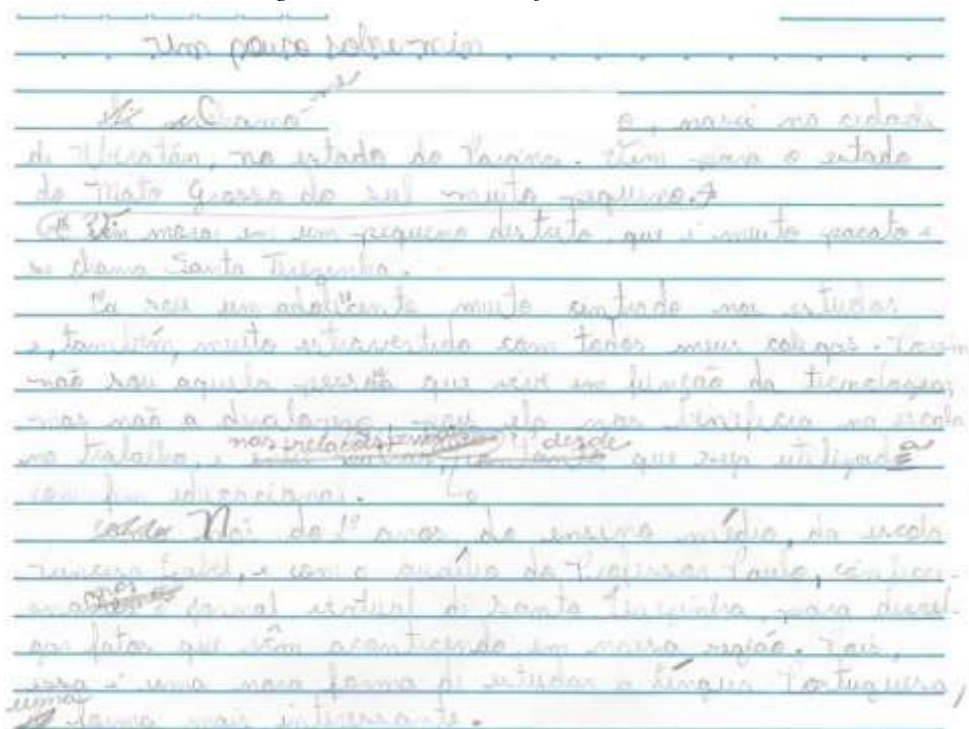 Um pouco sobre min
Chamo-me o, nasci na cidade
de Ubiratân, no estado do Paraná. Vim para o estado
do Mato Grosso do sul muito pequeno.
em um pequeno distrito, que é muito pacato e
se chama Santa Terezinha.
Eu sou um adolecente muito centrado nos estudos
e, também, muito estravertido com todos meus colegas. Porém
não sou aquela pessoa que vive em função da tecnologia,
mas não a ela nos beneficia na escola
no trabalho, e nos relacionamentos desde que seja utilizada
com fim educacional.
Nós do 1º anos, do ensino médio, da escola
Princesa Izabel, e com o auxílio do Professor Paulo,
o jornal virtual de Santa Terezinha, para divul-
gar fatos que vêm acontecendo em nossa região. Pois,
essa é uma nova forma de estudar a língua Portuguesa,
uma forma mais interessante.